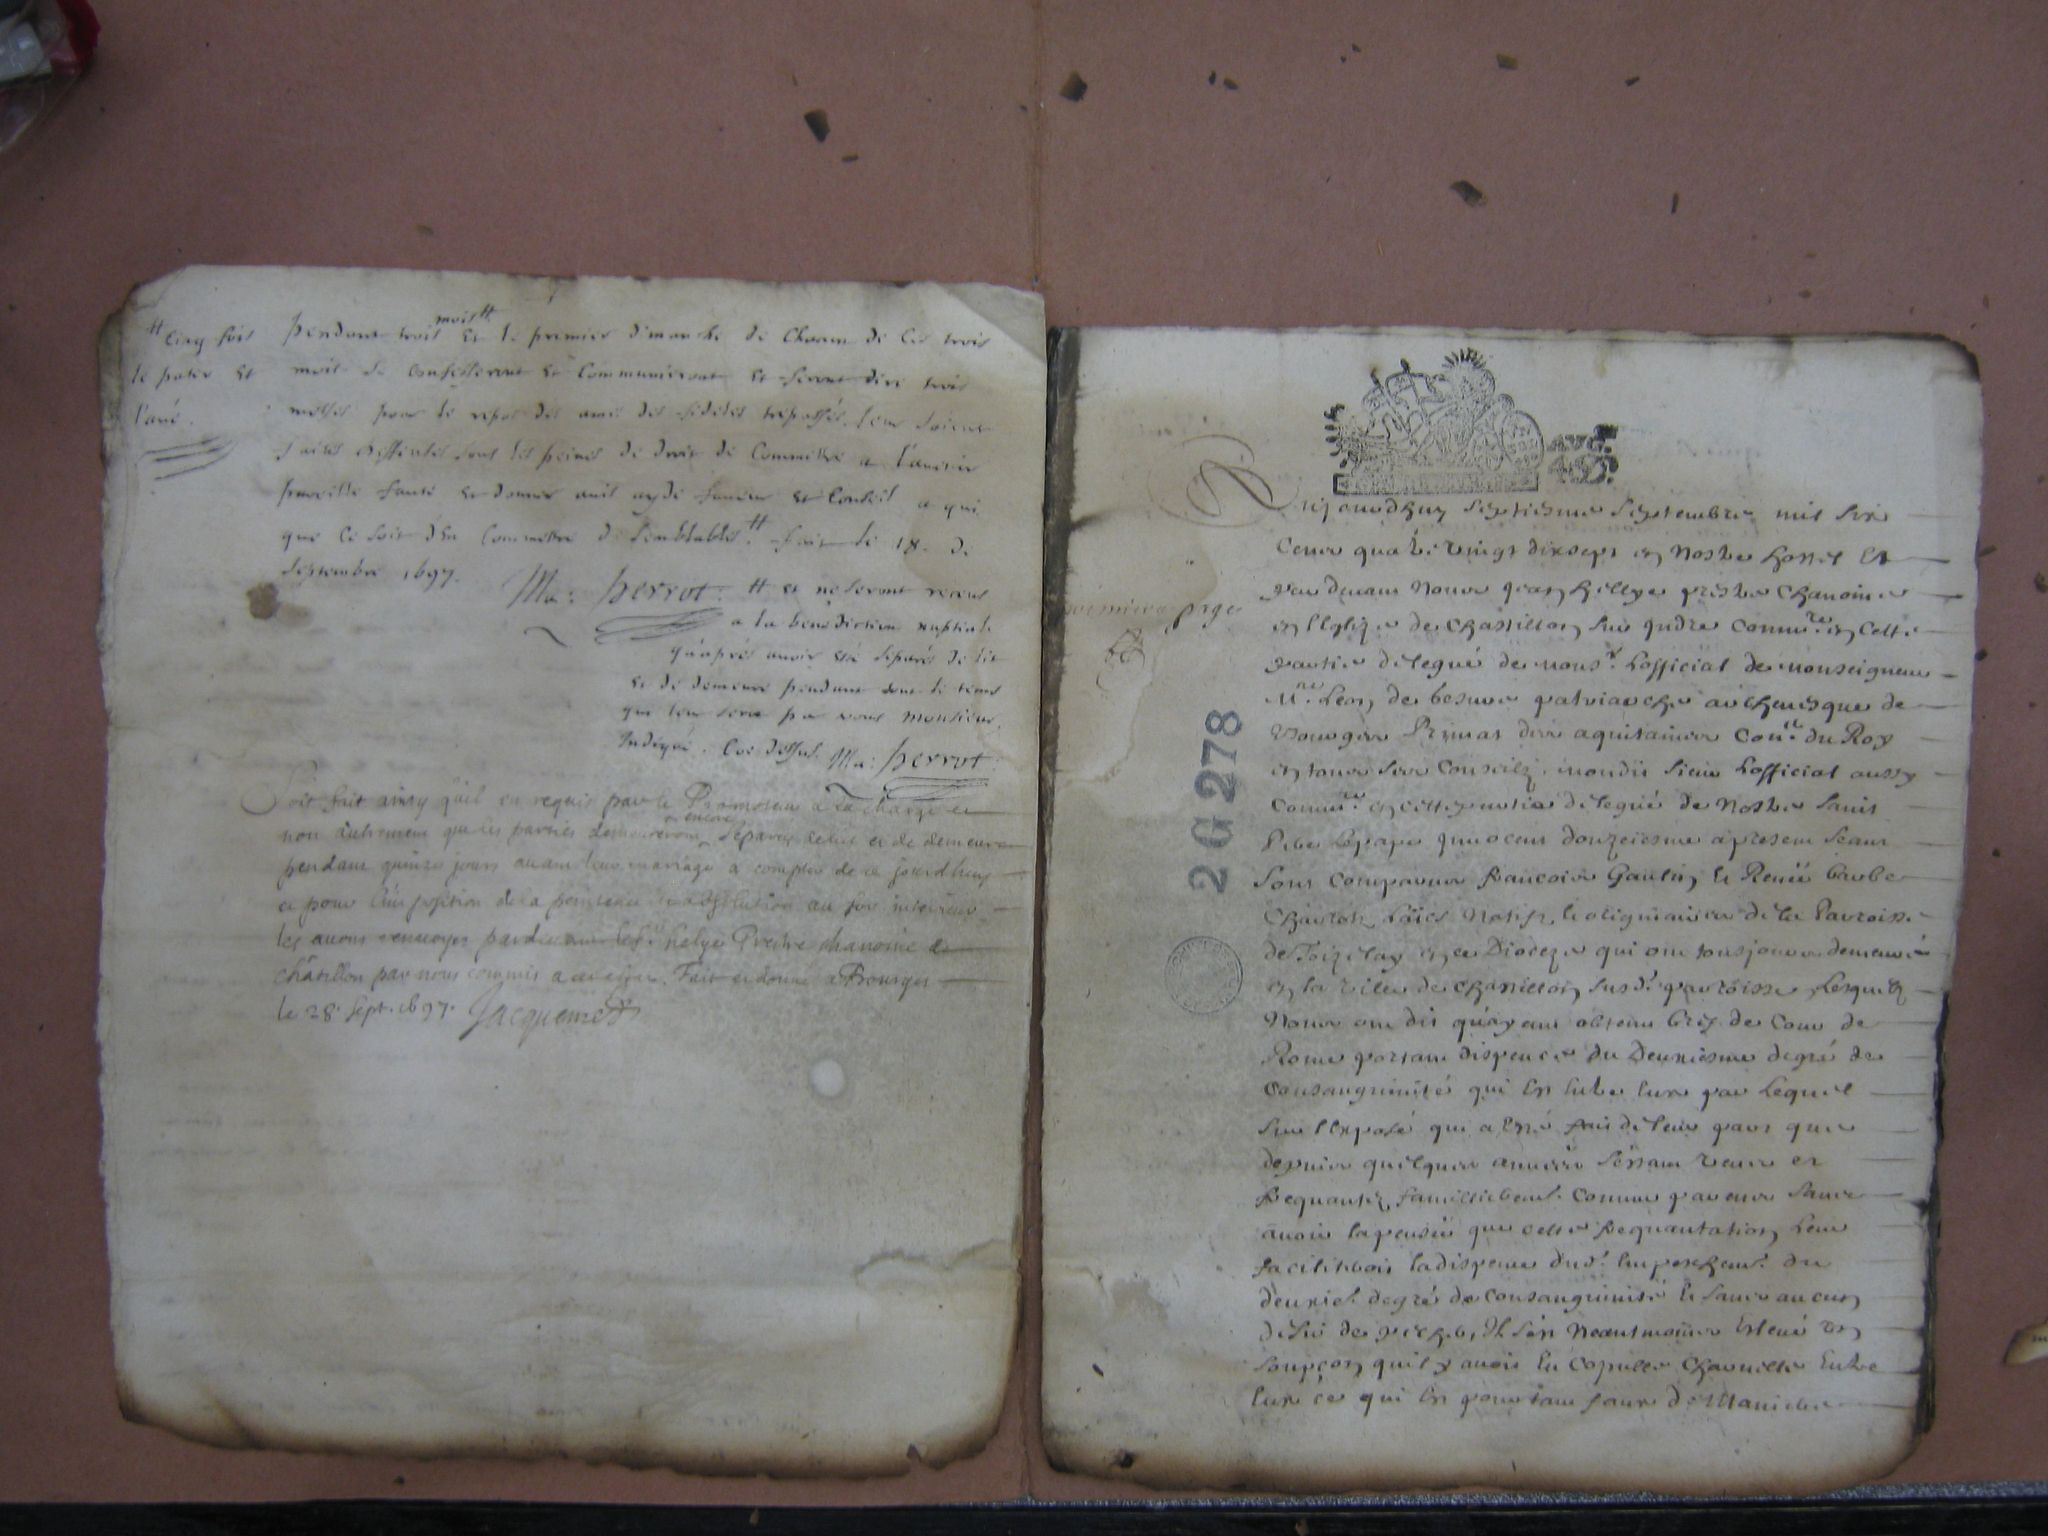 # cinq fois
le pater et
l'avé.
pendant trois mois # et le premier dimanche de chacun de ces trois
mois se confesseront et communieront et feront dire trois
messes pour le repos des ames des fideles trepassés. leur soient
faites deffenses sous les peines de droit de commettre a l'avenir
pareille faute et donner avis ayde faveur et conseil a qui
que ce soit d'en commettre de semblables. # fait le 18. de
septembre 1697.
Ma: perrot: # et ne seront receus
a la benediction nuptiale
qu'apres avoir esté separés de lit
et de demeure pendant tout le tems
qui leur sera par vous monsieur
indiqué. Cee dessus. Ma: perrot:
Soit fait ainsy qu'il est requis par le Promoteur a la charge et
non autrement que les parties demeureront encore separez de lict et de demeure
pendant quinze jours avant leur mariage a compter de ce jourdhuy
et pour l'imposition de la penitence et absolution au for interieur
les avons renvoyez pardevant le sr helye Prestre chanoine de
châtillon par nous commis a cet effet. Fait et donné a Bourges
le 28. sept. 1697. Jacquemet
premiere page
AVG.
4. D.
2 G 278
Aujourdhuy septiesme septembre mil six
cens quatre vingt dix sept en nostre hostel et
par devant nous jean hellye prestre chanoine
en l'Eglise de chastillon sur jndre commre en cette
partie delegué de monsr. Lofficial de monseigneur
Mre Leon de besure patriarche archevesque de
Bourges Primat des aquitaines coner du Roy
en tous ses conseilz, mondit sieur Lofficial aussy
commre en cette partie delegué de nostre saint
Pere Lepape jnnocent douzeiesme apresent seant
sont comparus francois Gaulin et Renée barbe
Charlot, Laics natifz, et originaires de la Parroisse
de Toizelay en ce Dioceze qui ont tousjours demeuré
en la ville de chastillon susd. parroisse, Lesquelz
nous ont dit qu'ayant obtenu bref de cour de
Rome portant dispence du deuxiesme degré de
consanguinité qui est entre eux par Lequel
sur l'exposé qui a esté fait de leur part que
depuis quelques années s'estant veus et
frequantez familierement. comme parens sans
avoir la pensée que cette frequantation leur
facilitroit la dispence dud. empeschemt. du
deuxie. degré de consanguinité et sans aucun
desir de pecher, Il s'est neantmoins eslevé un
soupçon qu'il y avoit eu copulle charnelle entre
eux ce qui est pourtant faux de maniere